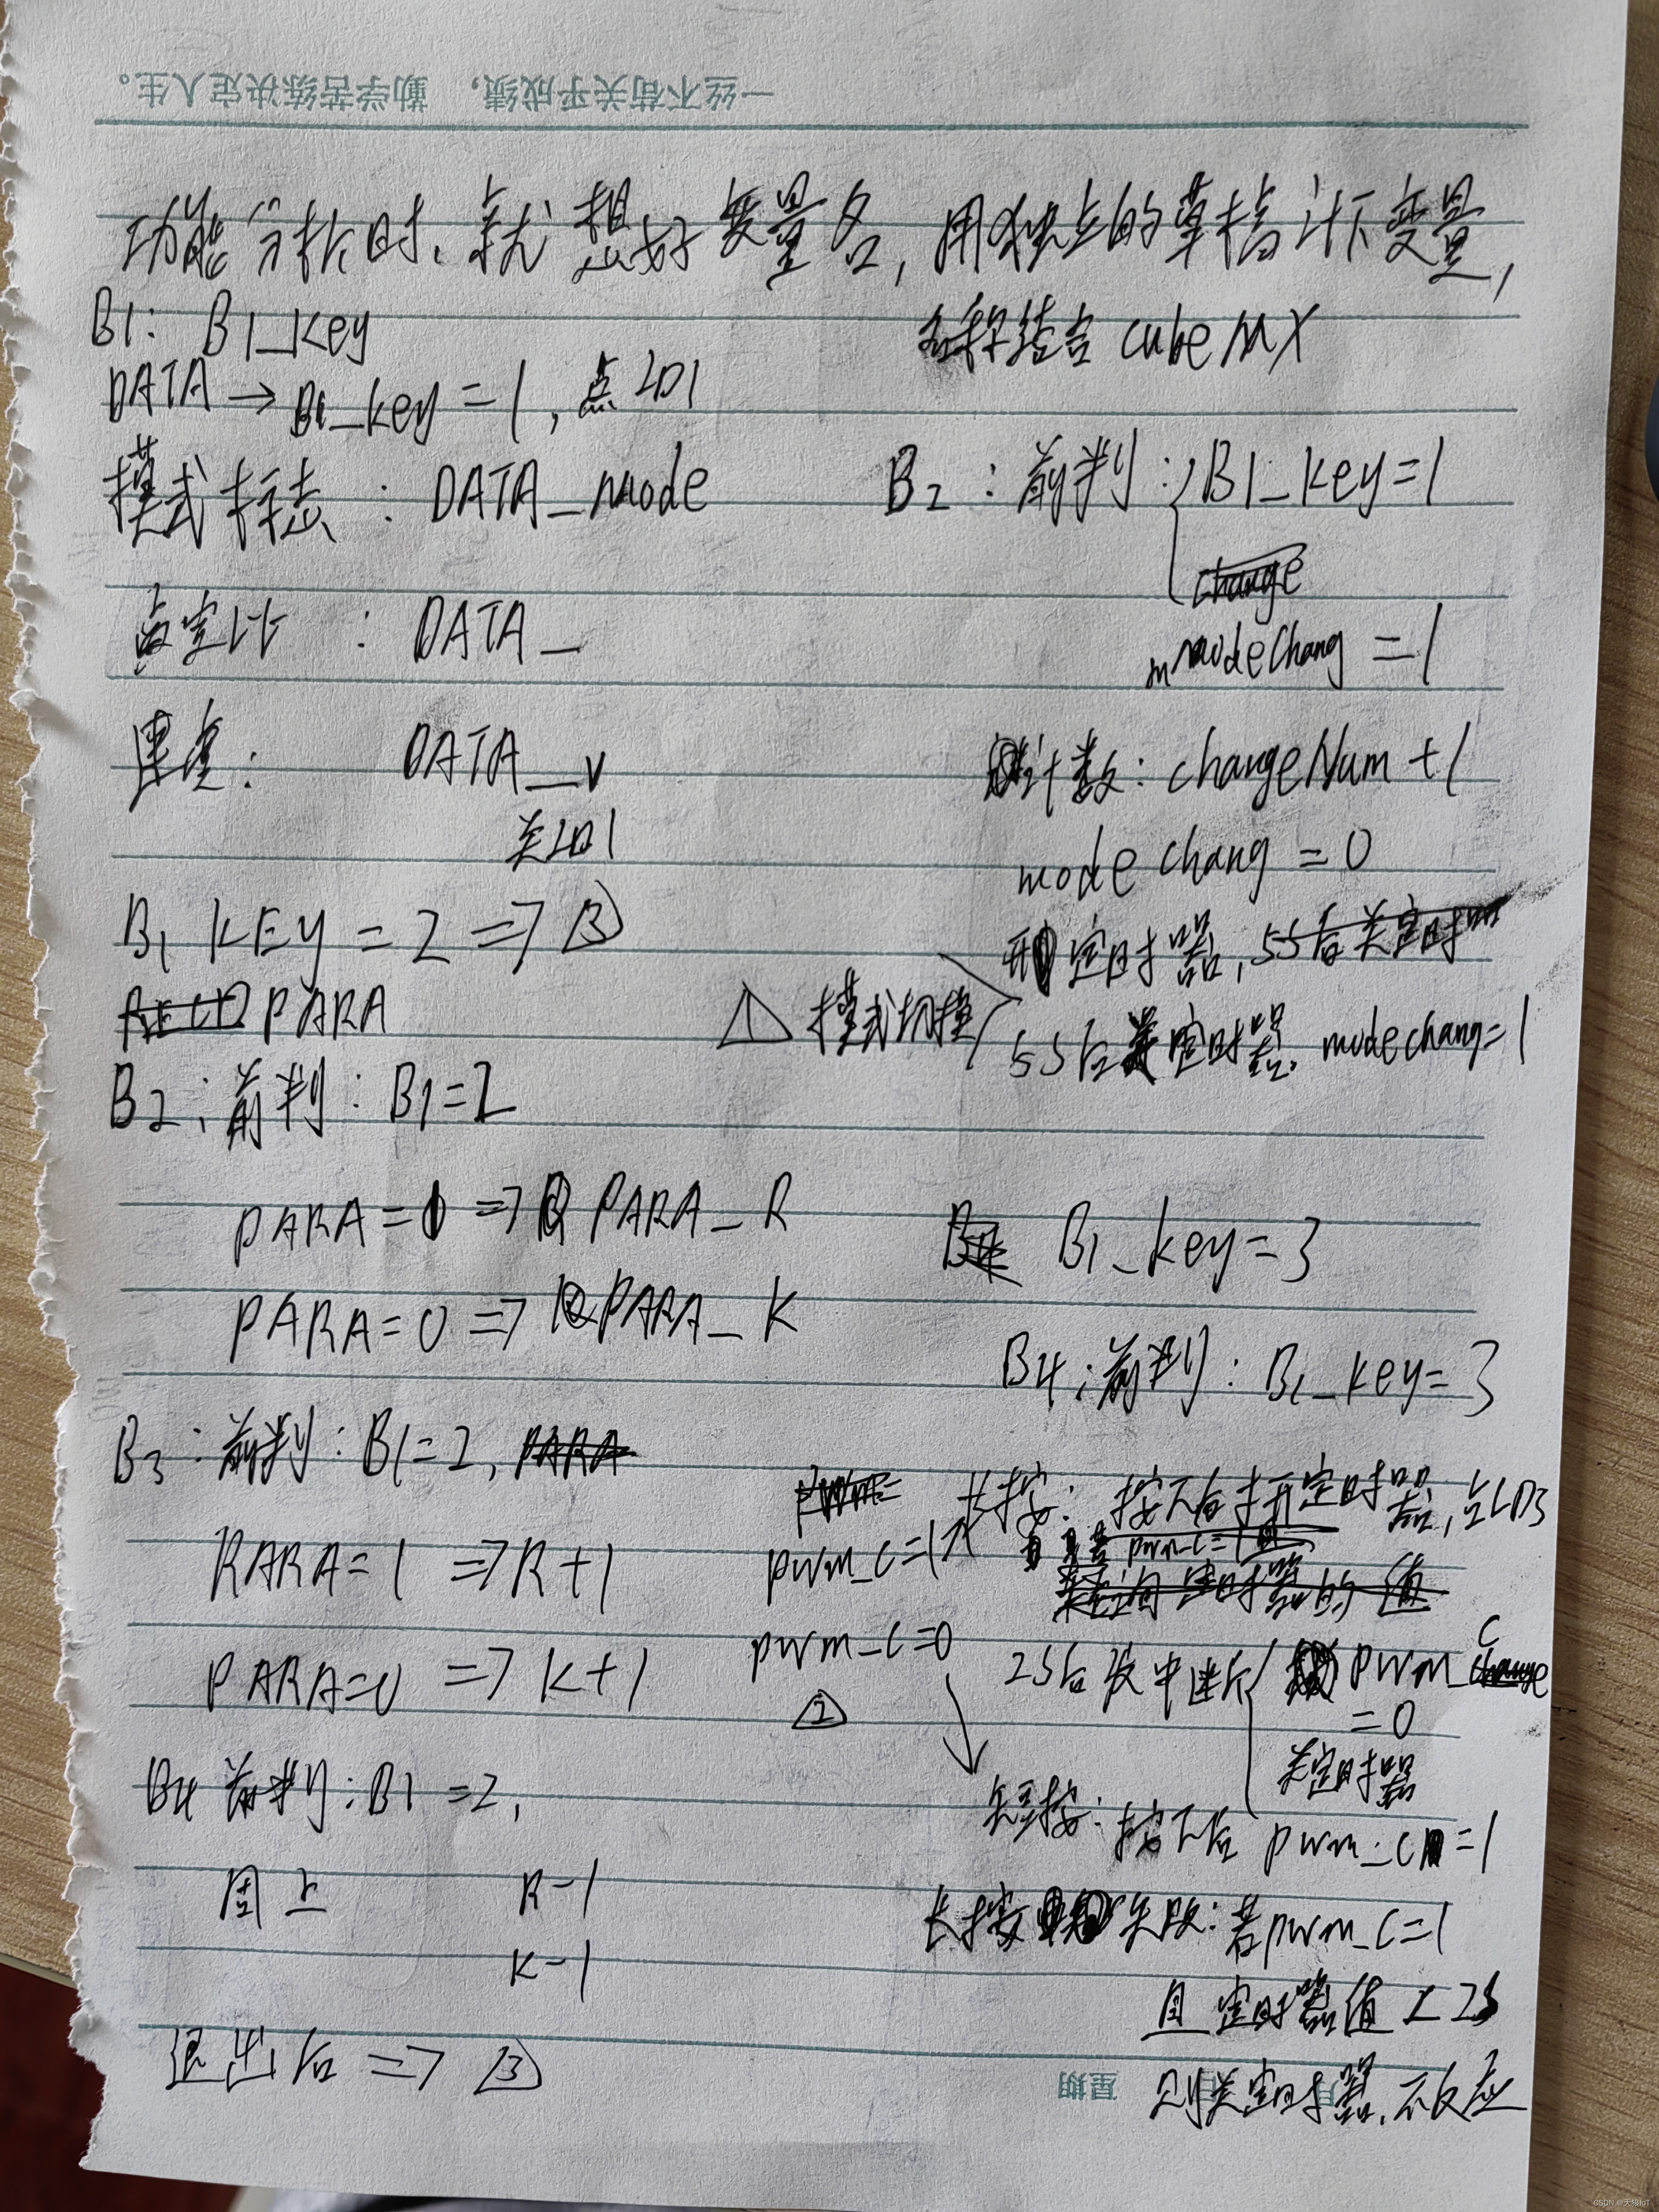 一丝不苟关乎成绩，勤学苦练决定人生。
功能分析时、就想好变量名，用独立的草稿计下变量，
名称结合 cubeMX
B1: B1_key
DATA → B1_key = 1, 点LD1
模式标志 : DATA_mode
占空比 : DATA_
速度: DATA_v
关LD1
B1 KEY = 2 => ③
PARA
B2: 前判: B1=2
PARA=1 => PARA_R
PARA=0 => PARA_K
B3: 前判: B1=2,
RARA=1 => R+1
PARA=0 => K+1
B4 前判: B1=2,
同上 R-1
K-1
退出后 => ③
B2: 前判: B1_key=1
change
modeChang = 1
计数: changeNum +1
mode chang = 0
开定时器, 5S后关定时器
△1 模式切换
5S后关定时器, modechang=1
B1_key=3
B4: 前判: B1_key=3
pwm_C=1
长按: 按下后打开定时器, 点LD3
pwm_C=1
定时器的值
pwm_C=0
△2
2S后发中断 pwm_C
=0
关定时器
短按: 按下后 pwm_C=1
长按失败: 若pwm_C=1
且定时器值<2S
则关定时器, 不反应
星期
CSDN @天恒IoT